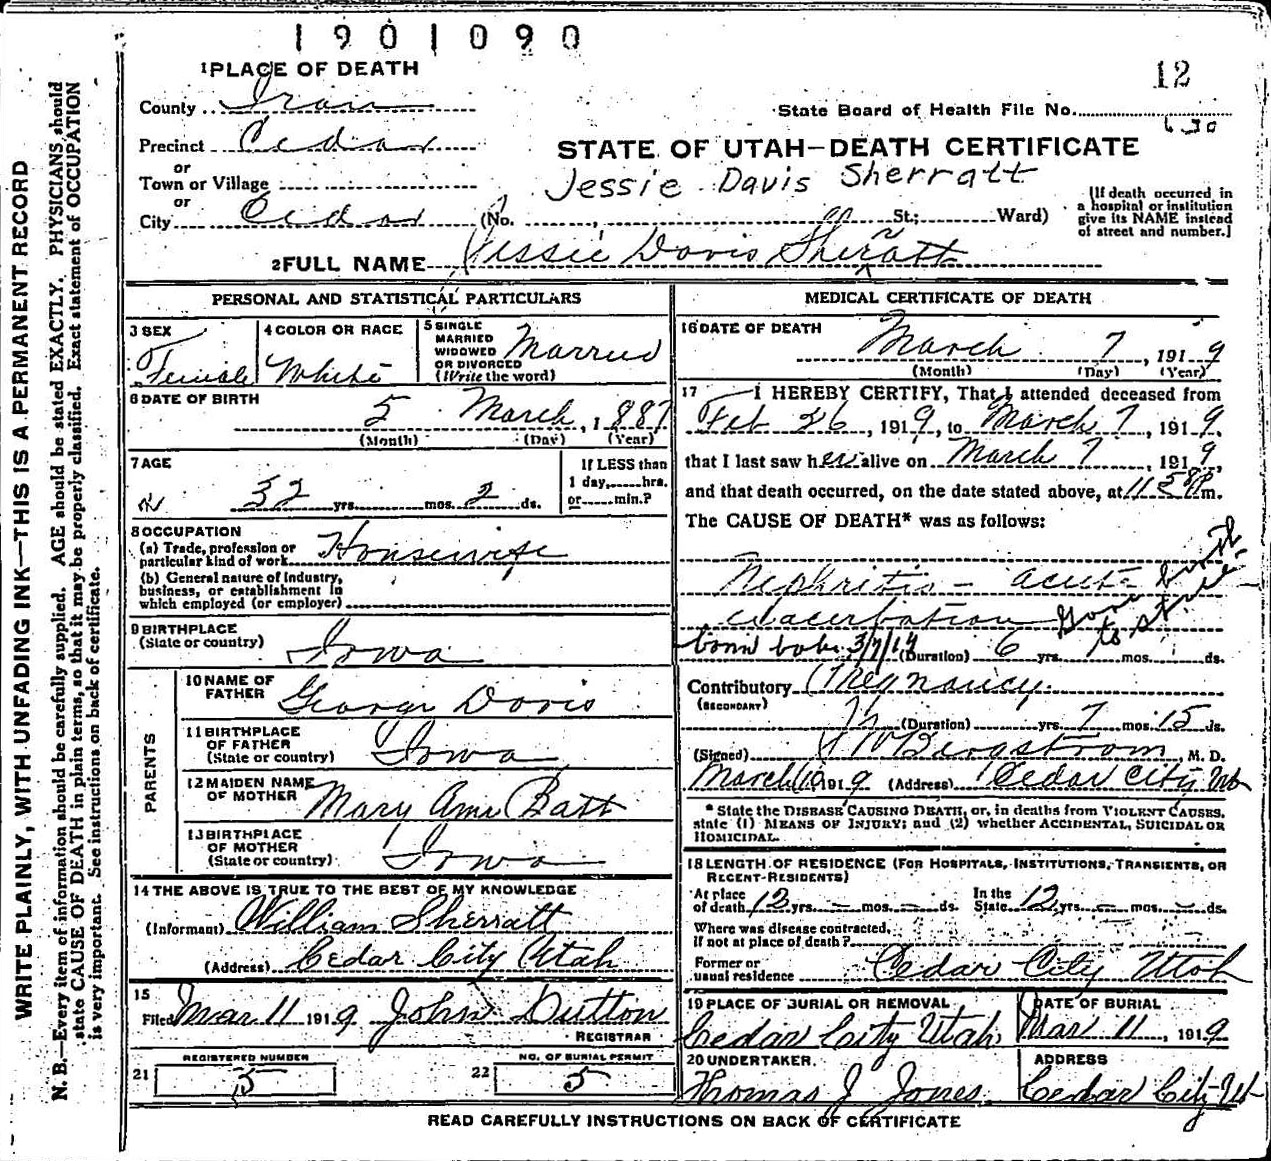 1901090
12
1 PLACE OF DEATH
County Iron
State Board of Health File No.
630
Precinct Cedar
STATE OF UTAH—DEATH CERTIFICATE
or
Town or Village
Jessie Davis Sherratt
or
City Cedar (No. , St.; Ward)
[If death occurred in a hospital or institution give its NAME instead of street and number.]
2 FULL NAME Jessie Davis Sherratt
PERSONAL AND STATISTICAL PARTICULARS
3 SEX
Female
4 COLOR OR RACE
White
5 SINGLE MARRIED WIDOWED OR DIVORCED (Write the word)
Married
6 DATE OF BIRTH
5 March, 1887
(Month) (Day) (Year)
7 AGE
32 yrs. mos. 2 ds.
If LESS than 1 day, hrs. or min.?
8 OCCUPATION
(a) Trade, profession or particular kind of work Housewife
(b) General nature of industry, business, or establishment in which employed (or employer)
9 BIRTHPLACE
(State or country) Iowa
PARENTS
10 NAME OF FATHER George Davis
11 BIRTHPLACE OF FATHER (State or country) Iowa
12 MAIDEN NAME OF MOTHER Mary Ann Batt
13 BIRTHPLACE OF MOTHER (State or country) Iowa
14 THE ABOVE IS TRUE TO THE BEST OF MY KNOWLEDGE
(Informant) William Sherratt
(Address) Cedar City Utah
15
Filed Mar 11 1919 John Dutton
REGISTRAR
REGISTERED NUMBER
21 5
NO. OF BURIAL PERMIT
22 5
MEDICAL CERTIFICATE OF DEATH
16 DATE OF DEATH
March 7, 1919
(Month) (Day) (Year)
17 I HEREBY CERTIFY, That I attended deceased from
Feb 26, 1919, to March 7, 1919
that I last saw her alive on March 7, 1919,
and that death occurred, on the date stated above, at 11 58 P m.
The CAUSE OF DEATH* was as follows:
Nephritis - acute
exacerbation
Gave birth to still
born babe 3/7/19 (Duration) 6 yrs. mos. ds.
Contributory Pregnancy
(SECONDARY)
(Duration) yrs. 7 mos. 15 ds.
(Signed) Bergstrom, M. D.
March 10 1919 (Address) Cedar City Ut
* State the DISEASE CAUSING DEATH, or, in deaths from VIOLENT CAUSES, state (1) MEANS OF INJURY; and (2) whether ACCIDENTAL, SUICIDAL OR HOMICIDAL.
18 LENGTH OF RESIDENCE (FOR HOSPITALS, INSTITUTIONS, TRANSIENTS, OR RECENT RESIDENTS)
At place of death 12 yrs. – mos. – ds. In the State 12 yrs. – mos. – ds.
Where was disease contracted, if not at place of death?
Former or usual residence Cedar City Utah
19 PLACE OF BURIAL OR REMOVAL
Cedar City Utah
DATE OF BURIAL
Mar 11, 1919
20 UNDERTAKER
Thomas J Jones
ADDRESS
Cedar City Ut
READ CAREFULLY INSTRUCTIONS ON BACK OF CERTIFICATE
WRITE PLAINLY, WITH UNFADING INK—THIS IS A PERMANENT RECORD
N. B.—Every item of information should be carefully supplied. AGE should be stated EXACTLY. PHYSICIANS should
state CAUSE OF DEATH in plain terms, so that it may be properly classified. Exact statement of OCCUPATION
is very important. See instructions on back of certificate.